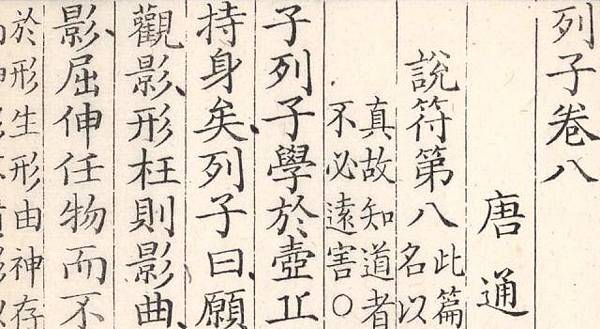 列子卷八
唐通
說符第八此篇
名以
真故知道者
不必遠害○
子列子學於壺丘
持身矣、列子曰、願
觀影、形枉則影曲、
影、屈伸任物而不
於形生形由神存